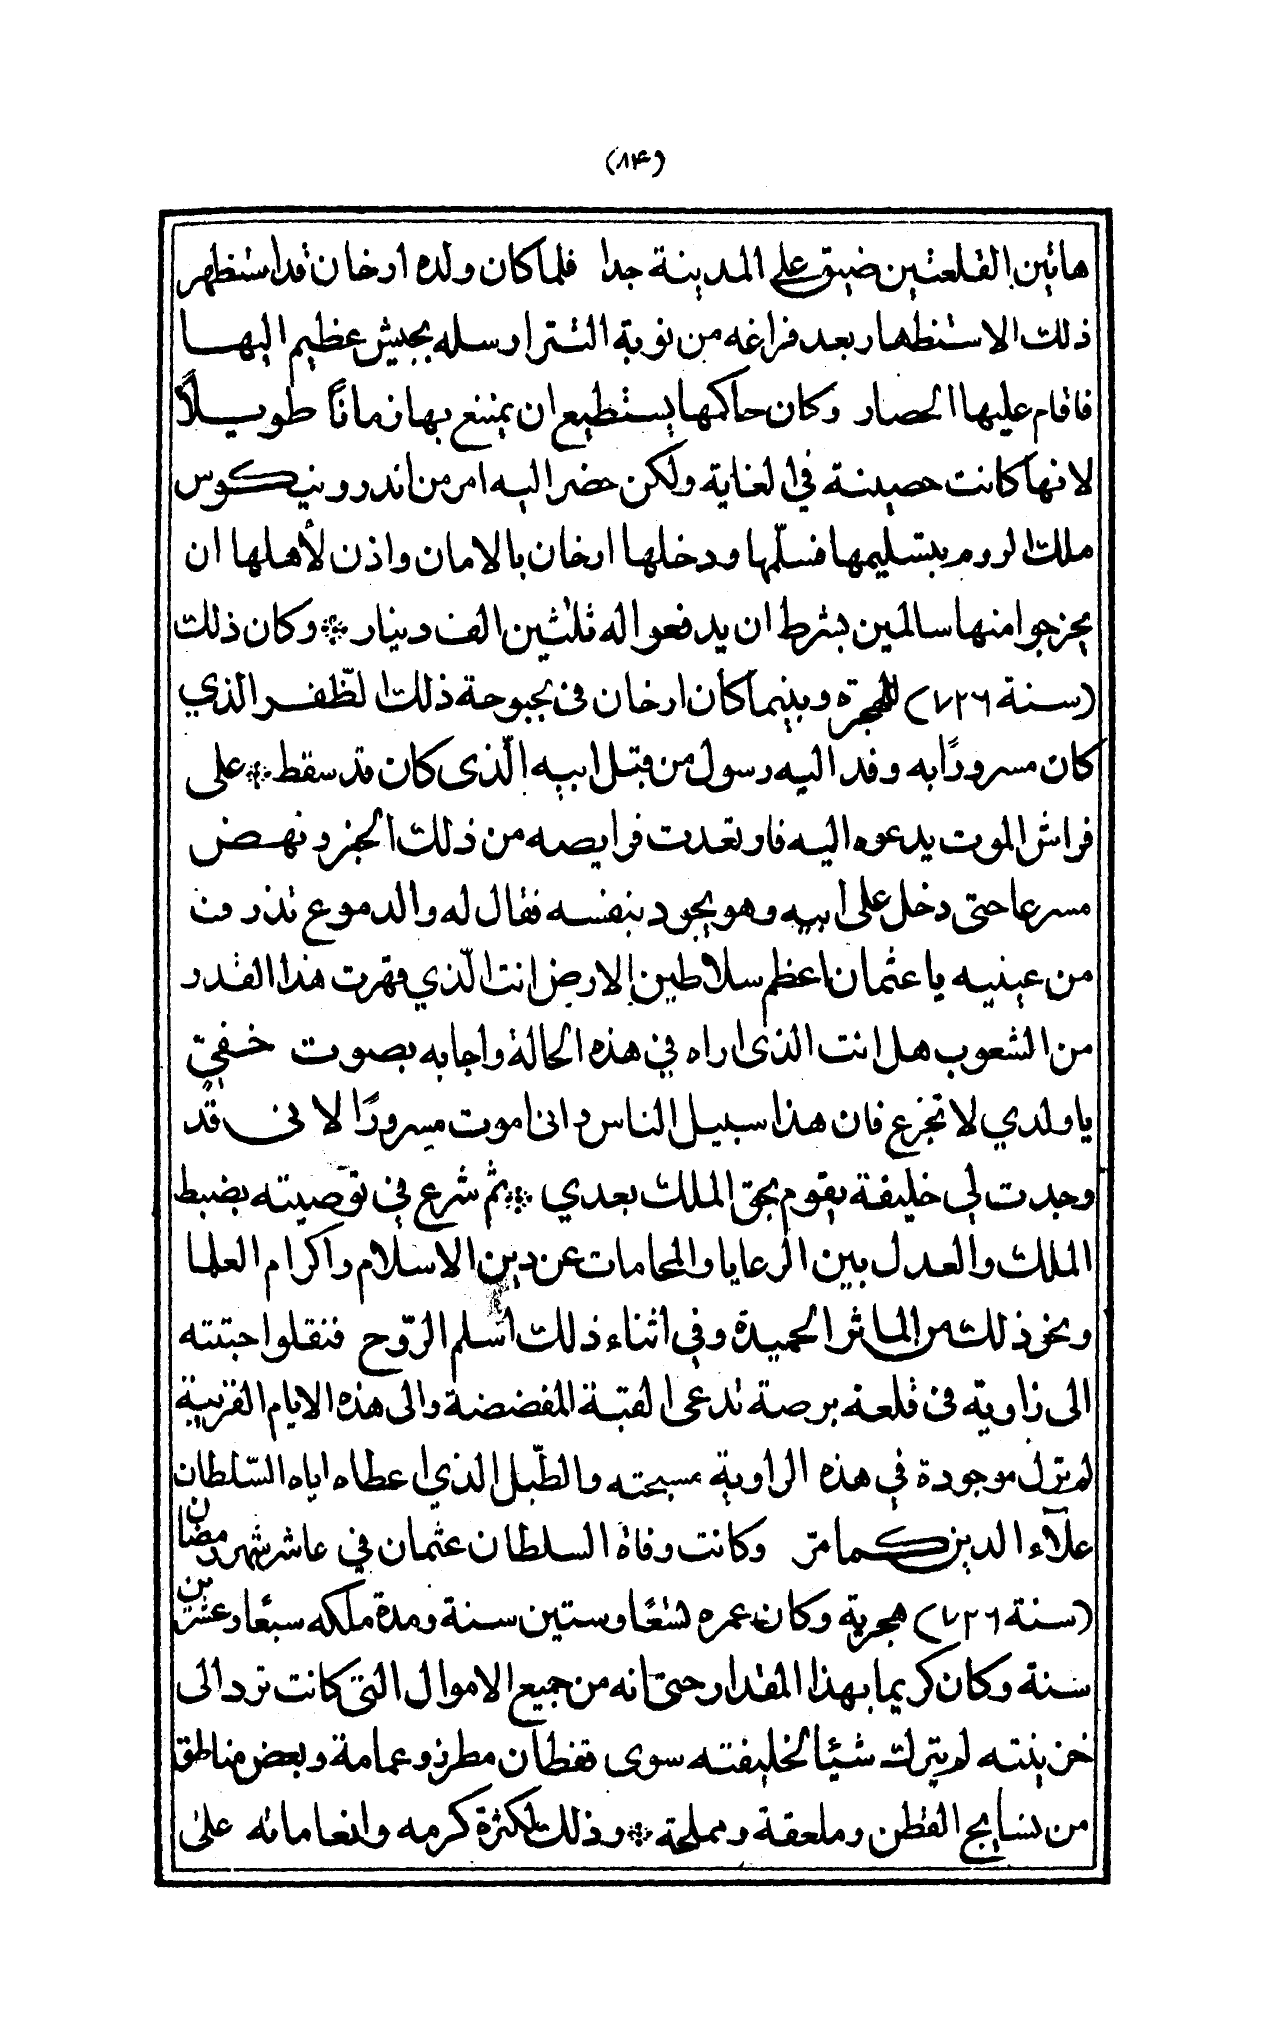 (٨۴)
هاتين القلعتين ضيق على المدينة جدا فلما كان ولده ارخان قد استظهر
ذلك الاستظهار بعد فراغه من نوبة التتر ارسله بجيش عظيم اليها
فاقام عليها الحصار وكان حاكمها يستطيع ان يمتنع بها زمانًا طويلًا
لانها كانت حصينة في الغاية ولكن حضر اليه امر من اندرونيكوس
ملك الروم بتسليمها فسلّمها ودخلها ارخان بالامان واذن لأهلها ان
يخرجوا منها سالمين بشرط ان يدفعوا له ثلثين الف دينار * وكان ذلك
(سنة ٧٢٦) للهجرة وبينما كان ارخان في بحبوحة ذلك الظّفر الذي
كان مسرورًا به وفد اليه رسول من قبل ابيه الّذي كان قد سقط * على
فراش الموت يدعوه اليه فارتعدت فرايصه من ذلك الخبر ونهض
مسرعا حتى دخل على ابيه وهو يجود بنفسه فقال له والدموع تذرف
من عينيه يا عثمان اعظم سلاطين الارض انت الّذي قهرت هذا القدر
من الشعوب هل انت الذي اراه في هذه الحالة واجابه بصوت خفيّ
يا ولدي لا تجزع فان هذا سبيل الناس واني اموت مسرورًا لاني قد
وجدت لي خليفة يقوم بحق الملك بعدي * ثم شرع في توصيته بضبط
الملك والعدل بين الرعايا والمحامات عن دين الاسلام واكرام العلما
ونحو ذلك من الماثر الحميدة وفي اثناء ذلك اسلم الرّوح فنقلوا جثته
الى زاوية في قلعة برصة تدعى القبة المفضضة والى هذه الايام القريبة
لم تزل موجودة في هذه الزاوية مسبحته والطّبل الذي اعطاه اياه السّلطان
علآء الدين كما مرّ وكانت وفاة السلطان عثمان في عاشر شهر رمضان
(سنة ٧٢٦) هجرية وكان عمره تسعًا وستين سنة ومدة ملكه سبعًا وعشرين
سنة وكان كريما بهذا المقدار حتى انه من جميع الاموال التي كانت ترد الى
خزينته لم يترك شيئا لخليفته سوى قفطان مطرز وعمامة وبعض مناطق
من نسايج القطن وملعقة ومملحة * وذلك لكثرة كرمه وانعاماته على